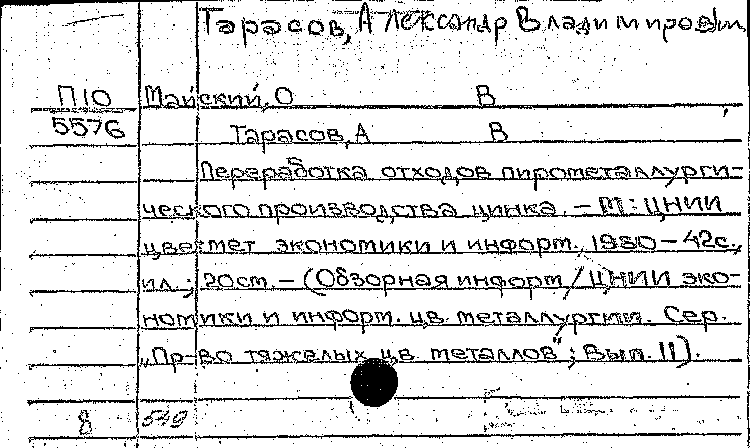 Тарасов, Александр Владимирович
П10 Майский, О В
5576 Тарасов, А В
Переработка отходов пирометаллурги-
ческого производства цинка. – М: ЦНИИ
цветмет экономики и информ., 1980 – 42с.,
ил.; 20см. – (Обзорная информ / ЦНИИ эко-
номики и информ. цв. металлургии. Сер.
„Пр-во тяжелых цв. металлов"; Вып. 11).
8 549